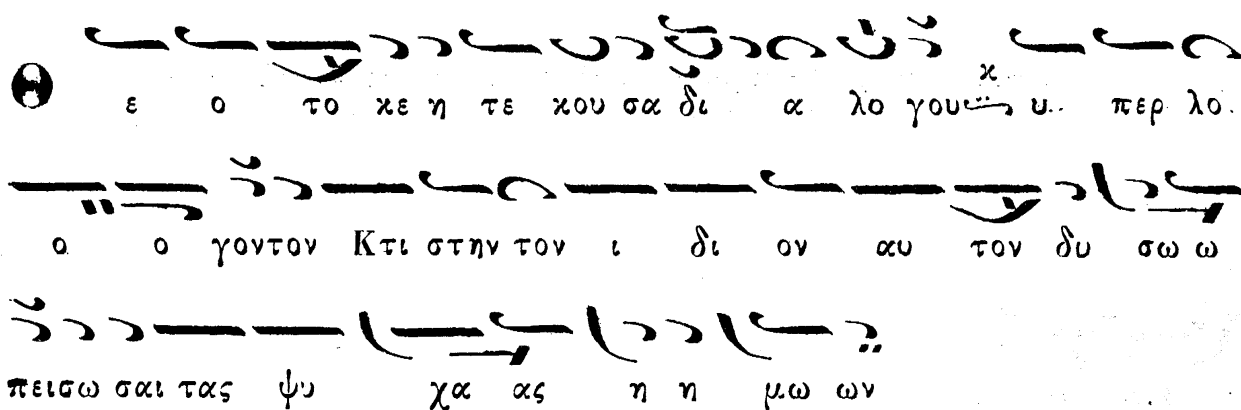 Θ ε ο το κε η τε κου σα δι α λο γου υ περ λο
ο ο γοντον Κτι στην τον ι δι ον αυ τον δυ σω ω
πεισω σαι τας ψυ χα ας η η μω ων